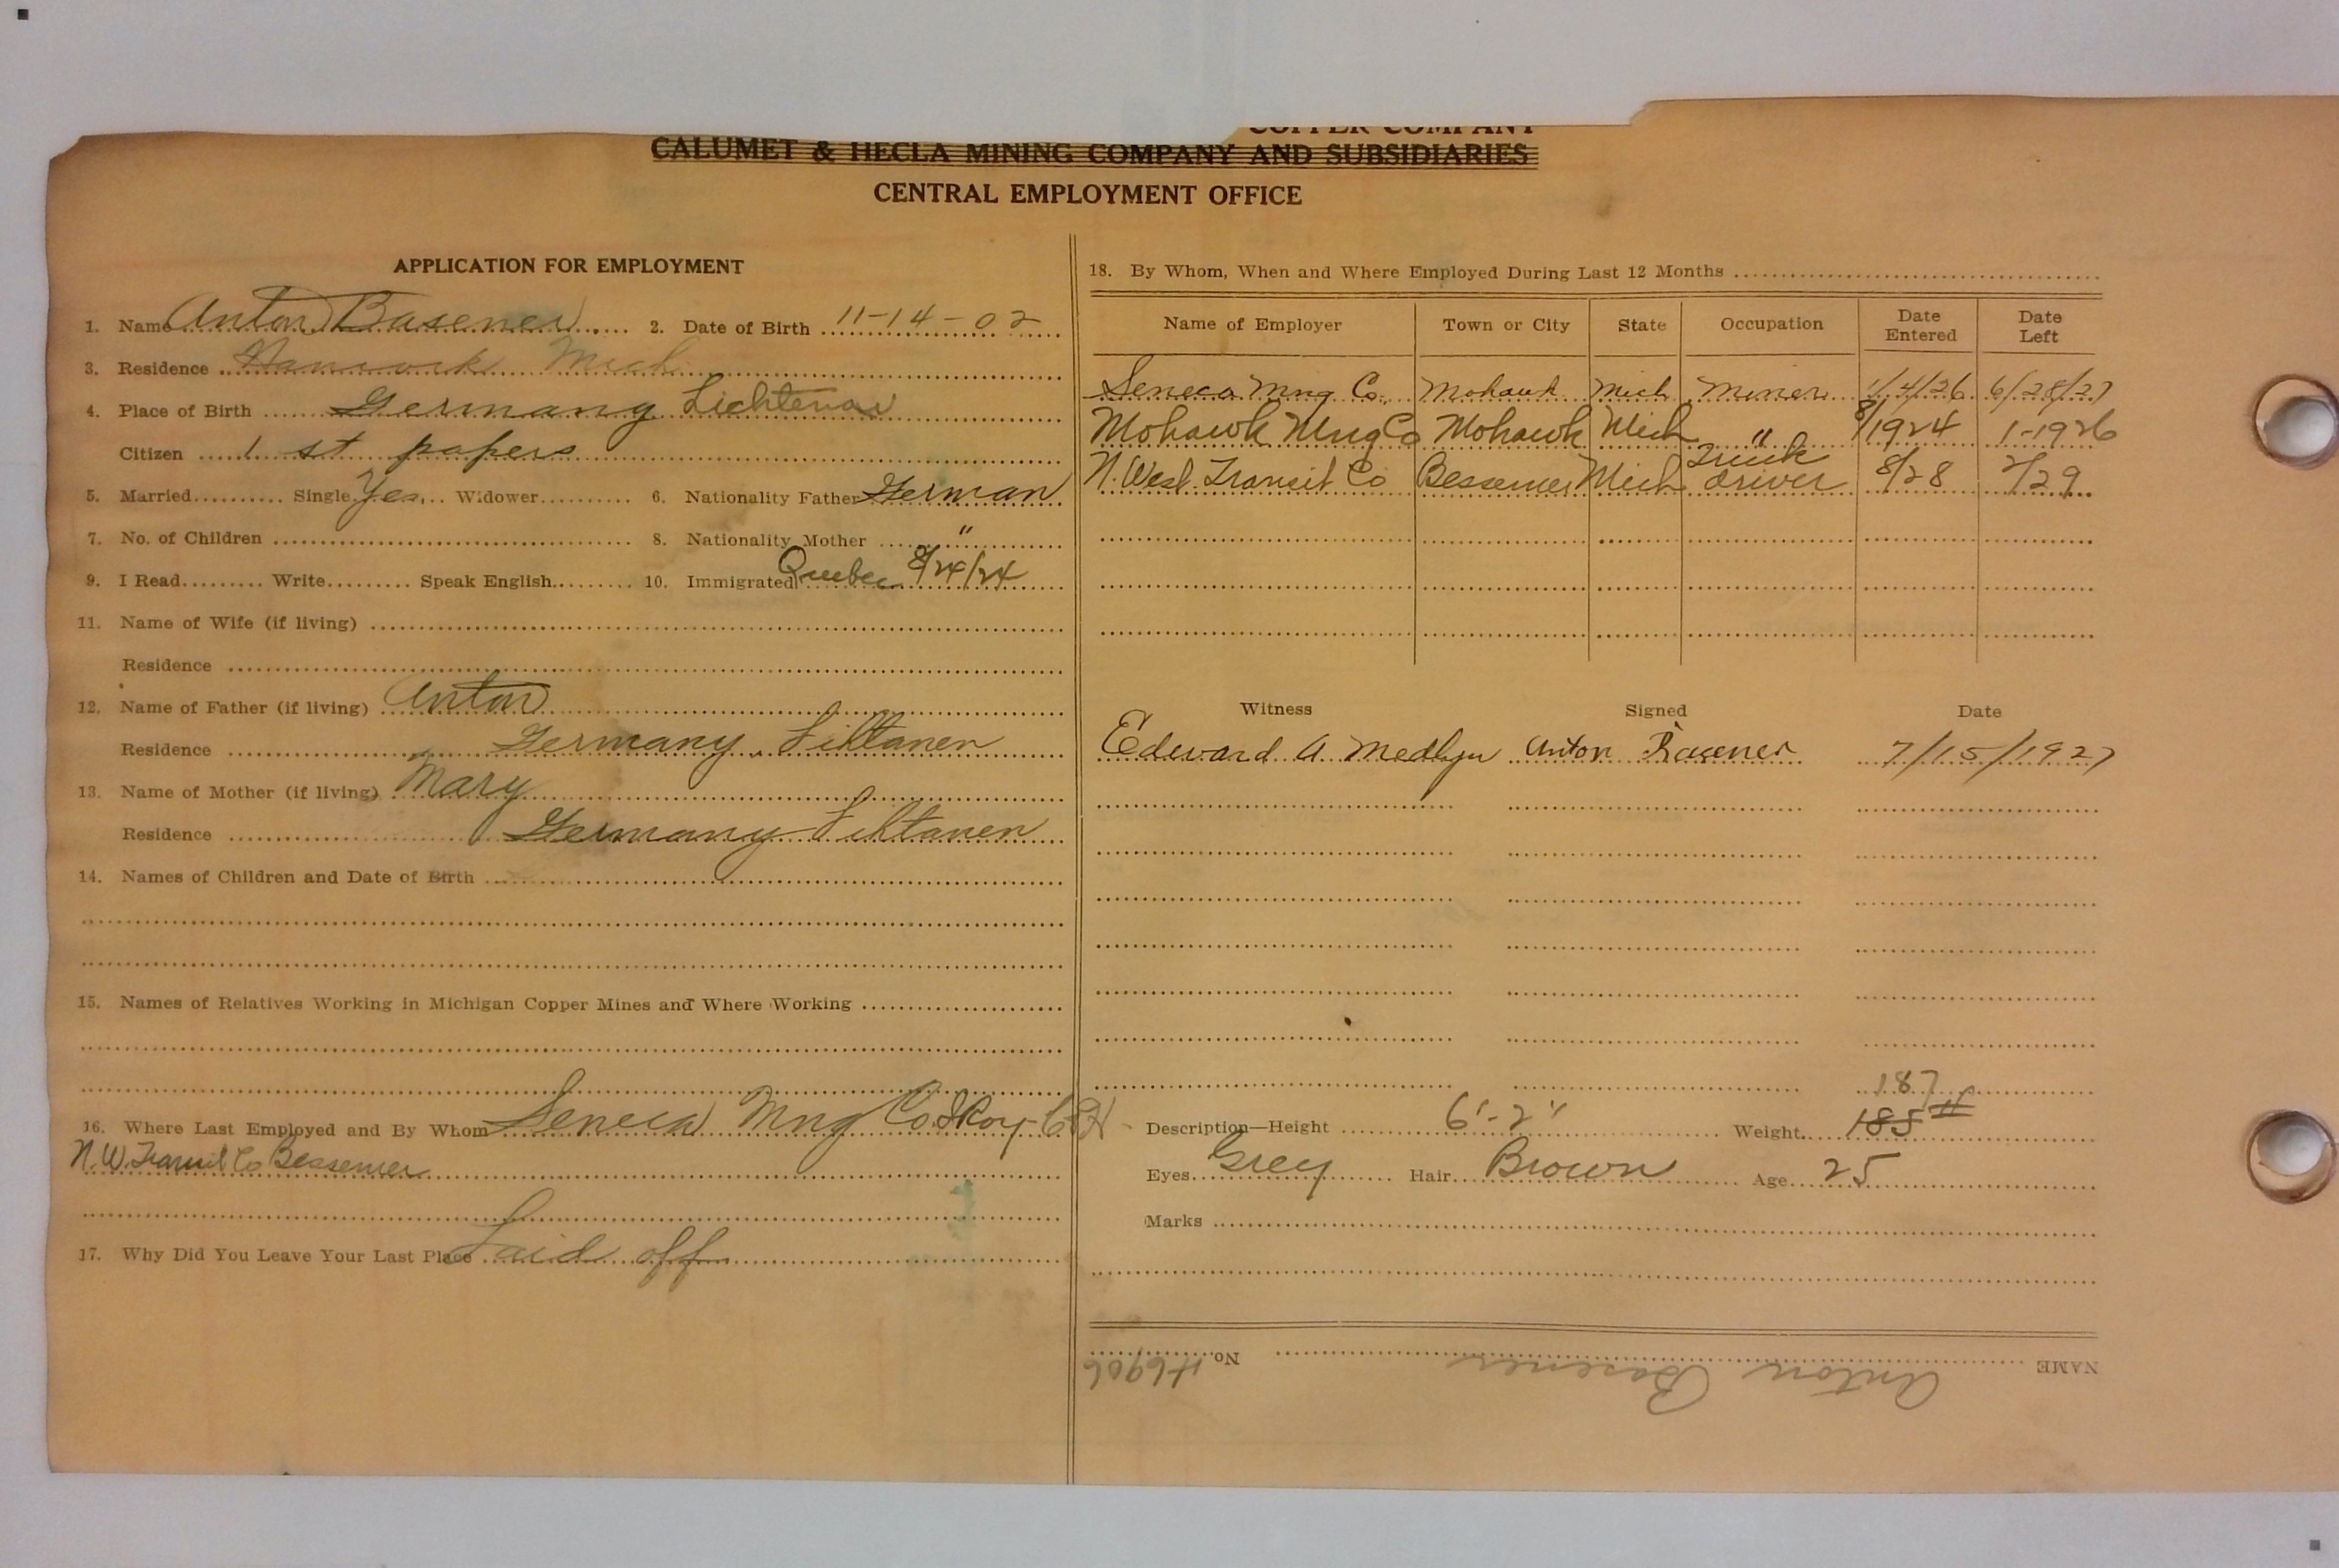 COPPER COMPANY
CALUMET & HECLA MINING COMPANY AND SUBSIDIARIES
CENTRAL EMPLOYMENT OFFICE
APPLICATION FOR EMPLOYMENT
1. Name Anton Basener 2. Date of Birth 11-14-02
3. Residence Hancock Mich
4. Place of Birth Germany Lichtenau
Citizen 1st papers
5. Married Single Yes Widower 6. Nationality Father German
7. No. of Children 8. Nationality Mother "
9. I Read Write Speak English 10. Immigrated Quebec 8/24/24
11. Name of Wife (if living)
Residence
12. Name of Father (if living) Anton
Residence Germany Lihtanen
13. Name of Mother (if living) Mary
Residence Germany Lihtanen
14. Names of Children and Date of Birth
15. Names of Relatives Working in Michigan Copper Mines and Where Working
16. Where Last Employed and By Whom Seneca Mng Co. C&H
N.W. Transit Co Bessemer
17. Why Did You Leave Your Last Place Laid off
18. By Whom, When and Where Employed During Last 12 Months
Name of Employer Town or City State Occupation Date Entered Date Left
Seneca Mng Co. Mohawk Mich Miner 1/4/26 6/28/27
Mohawk Mng Co Mohawk Mich " 8/1924 1-1926
N. West. Transit Co Bessemer Mich Truck driver 8/28 2/29
Witness Signed Date
Edward A. Medlyn Anton Basener 7/15/1927
187
Description—Height 6'-2" Weight 185#
Eyes Grey Hair Brown Age 25
Marks
NAME Anton Basener No. H6906